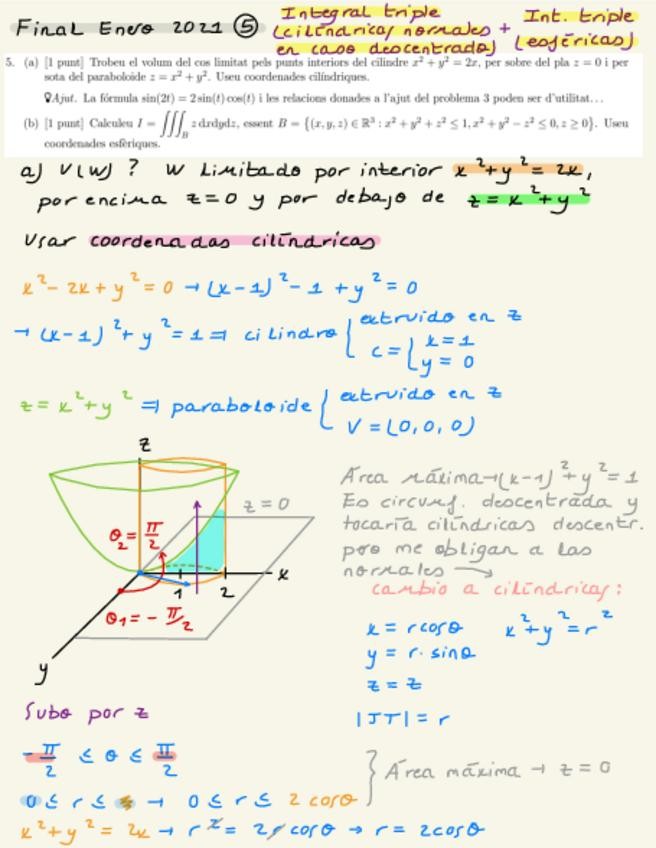 Final Enero 2021 ⑤ Integral triple (cilíndricas normales en caso descentrado) + Int. triple (esféricas)
5. (a) [1 punt] Trobeu el volum del cos limitat pels punts interiors del cilindre x² + y² = 2x, per sobre del pla z = 0 i per
sota del paraboloide z = x² + y². Useu coordenades cilíndriques.
Ajut. La fórmula sin(2t) = 2 sin(t) cos(t) i les relacions donades a l'ajut del problema 3 poden ser d'utilitat...
(b) [1 punt] Calculeu I = ∭_B z dxdydz, essent B = {(x, y, z) ∈ ℝ³ : x² + y² + z² ≤ 1, x² + y² − z² ≤ 0, z ≥ 0}. Useu
coordenades esfèriques.
a) V(W) ? W limitado por interior x² + y² = 2x,
por encima z = 0 y por debajo de z = x² + y²
Usar coordenadas cilíndricas
x² - 2x + y² = 0 → (x-1)² - 1 + y² = 0
→ (x-1)² + y² = 1 ⇒ cilindro { extruido en z
C = { x = 1
y = 0
z = x² + y² ⇒ paraboloide { extruido en z
V = (0, 0, 0)
z
z = 0
θ₂ = π/2
x
1 2
θ₁ = - π/2
y
Área máxima → (x-1)² + y² = 1
Es circunf. descentrada y
tocaría cilíndricas descentr.
pero me obligan a las
normales →
cambio a cilíndricas:
x = r cosθ x² + y² = r²
y = r · sinθ
z = z
|JT| = r
Subo por z
- π/2 ≤ θ ≤ π/2
0 ≤ r ≤ → 0 ≤ r ≤ 2 cosθ
} Área máxima → z = 0
x² + y² = 2x → r² = 2r cosθ → r = 2cosθ